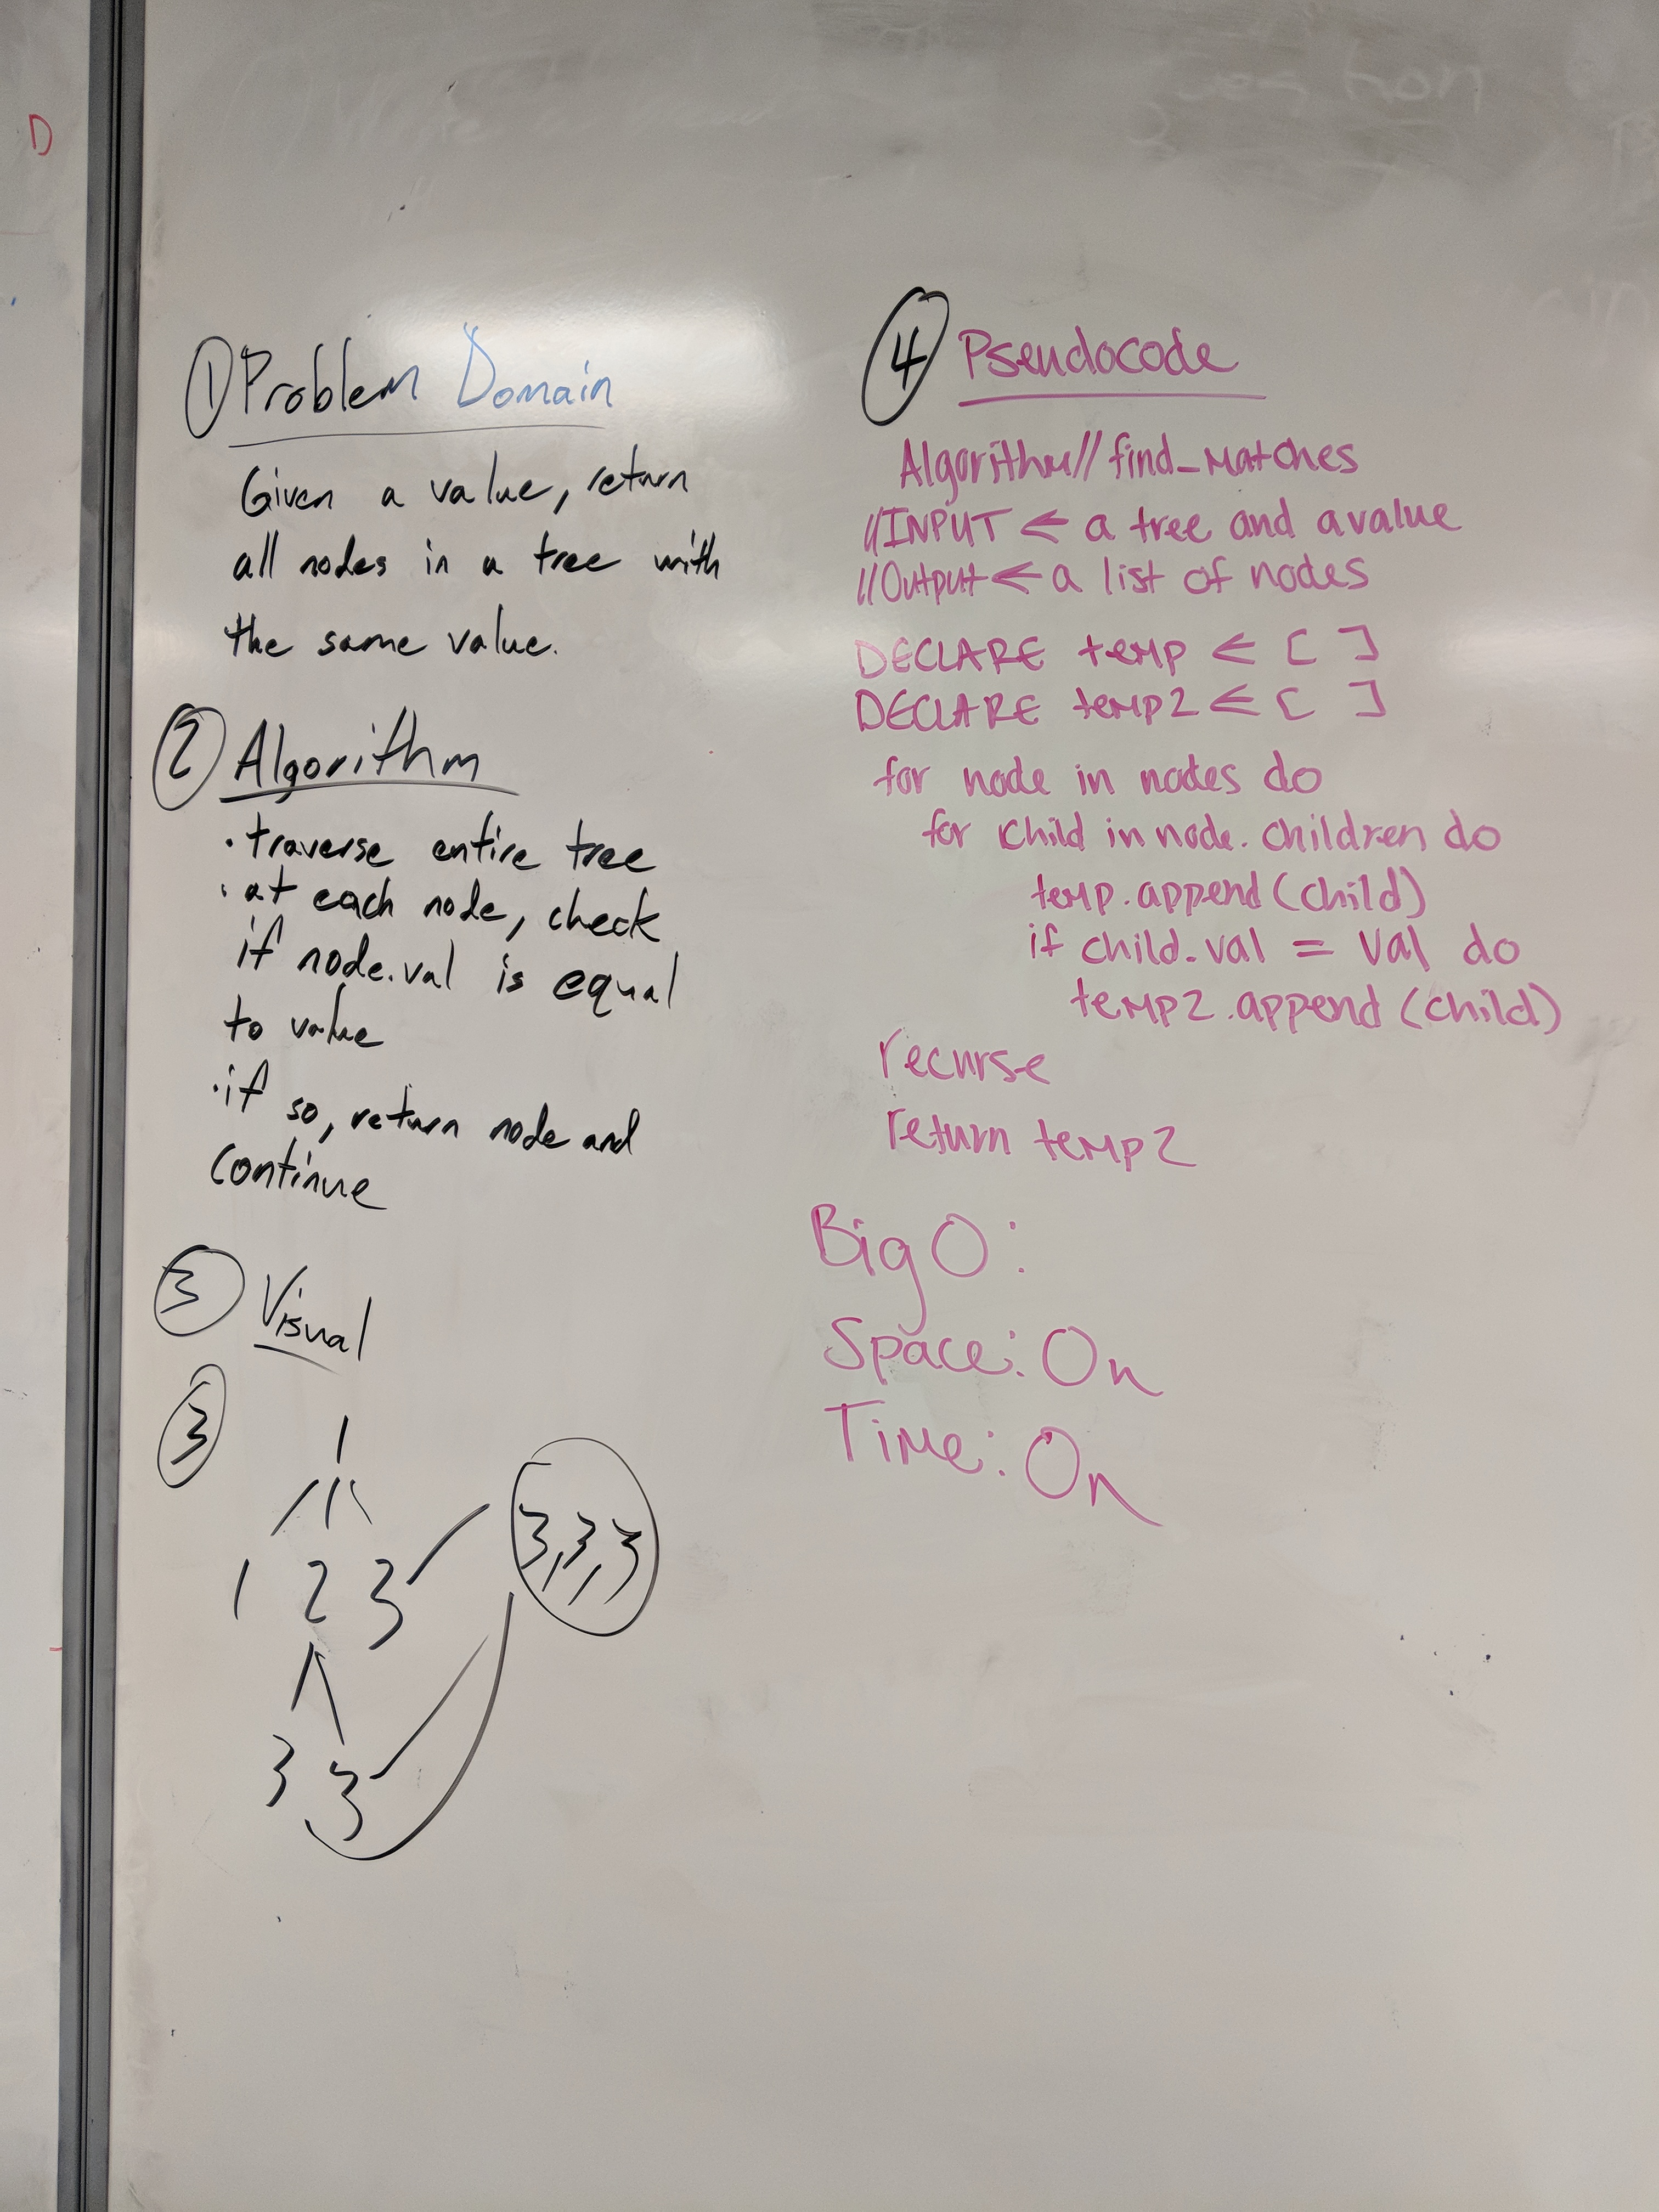 D
① Problem Domain
Given a value, return
all nodes in a tree with
the same value.
② Algorithm
· traverse entire tree
· at each node, check
if node.val is equal
to value
· if so, return node and
continue
③ Visual
③
1
1 2 3
3,3,3
3 3
④ Pseudocode
Algorithm// find_matches
//INPUT <- a tree and a value
//Output <- a list of nodes
DECLARE temp <- [ ]
DECLARE temp2 <- [ ]
for node in nodes do
for child in node.children do
temp.append(child)
if child.val = val do
temp2.append(child)
recurse
return temp2
Big O:
Space: On
Time: On